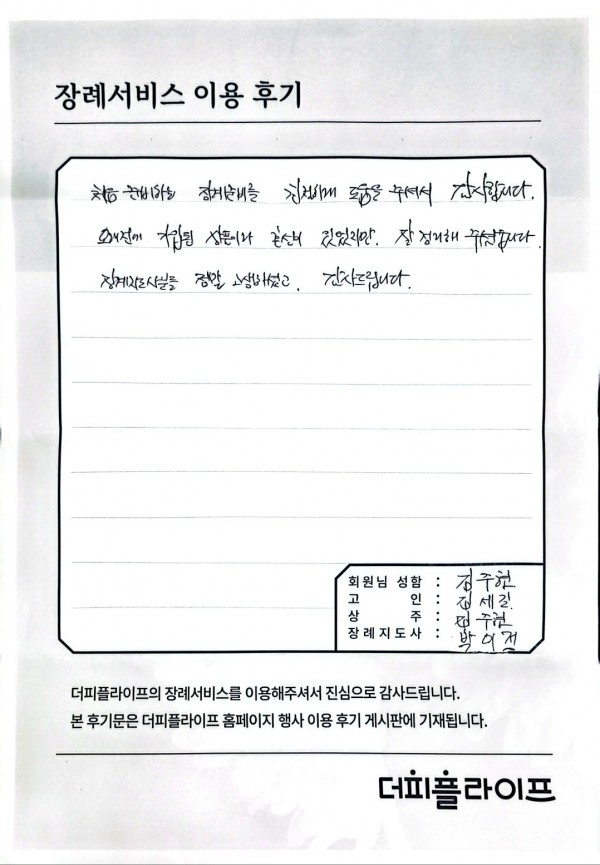 장례서비스 이용 후기
처음 준비하는 장례문제를 친절하게 도움을 주셔서 감사합니다.
오래전에 가입된 상품이라 혼선이 있었지만. 잘 정리해 주셨습니다.
장례지도사분들 정말 고생하셨고. 감사드립니다.
회원님 성함 : 김주현
고 인 : 김세길
상 주 : 김주현
장례지도사 : 박
더피플라이프의 장례서비스를 이용해주셔서 진심으로 감사드립니다.
본 후기문은 더피플라이프 홈페이지 행사 이용 후기 게시판에 기재됩니다.
더피플라이프